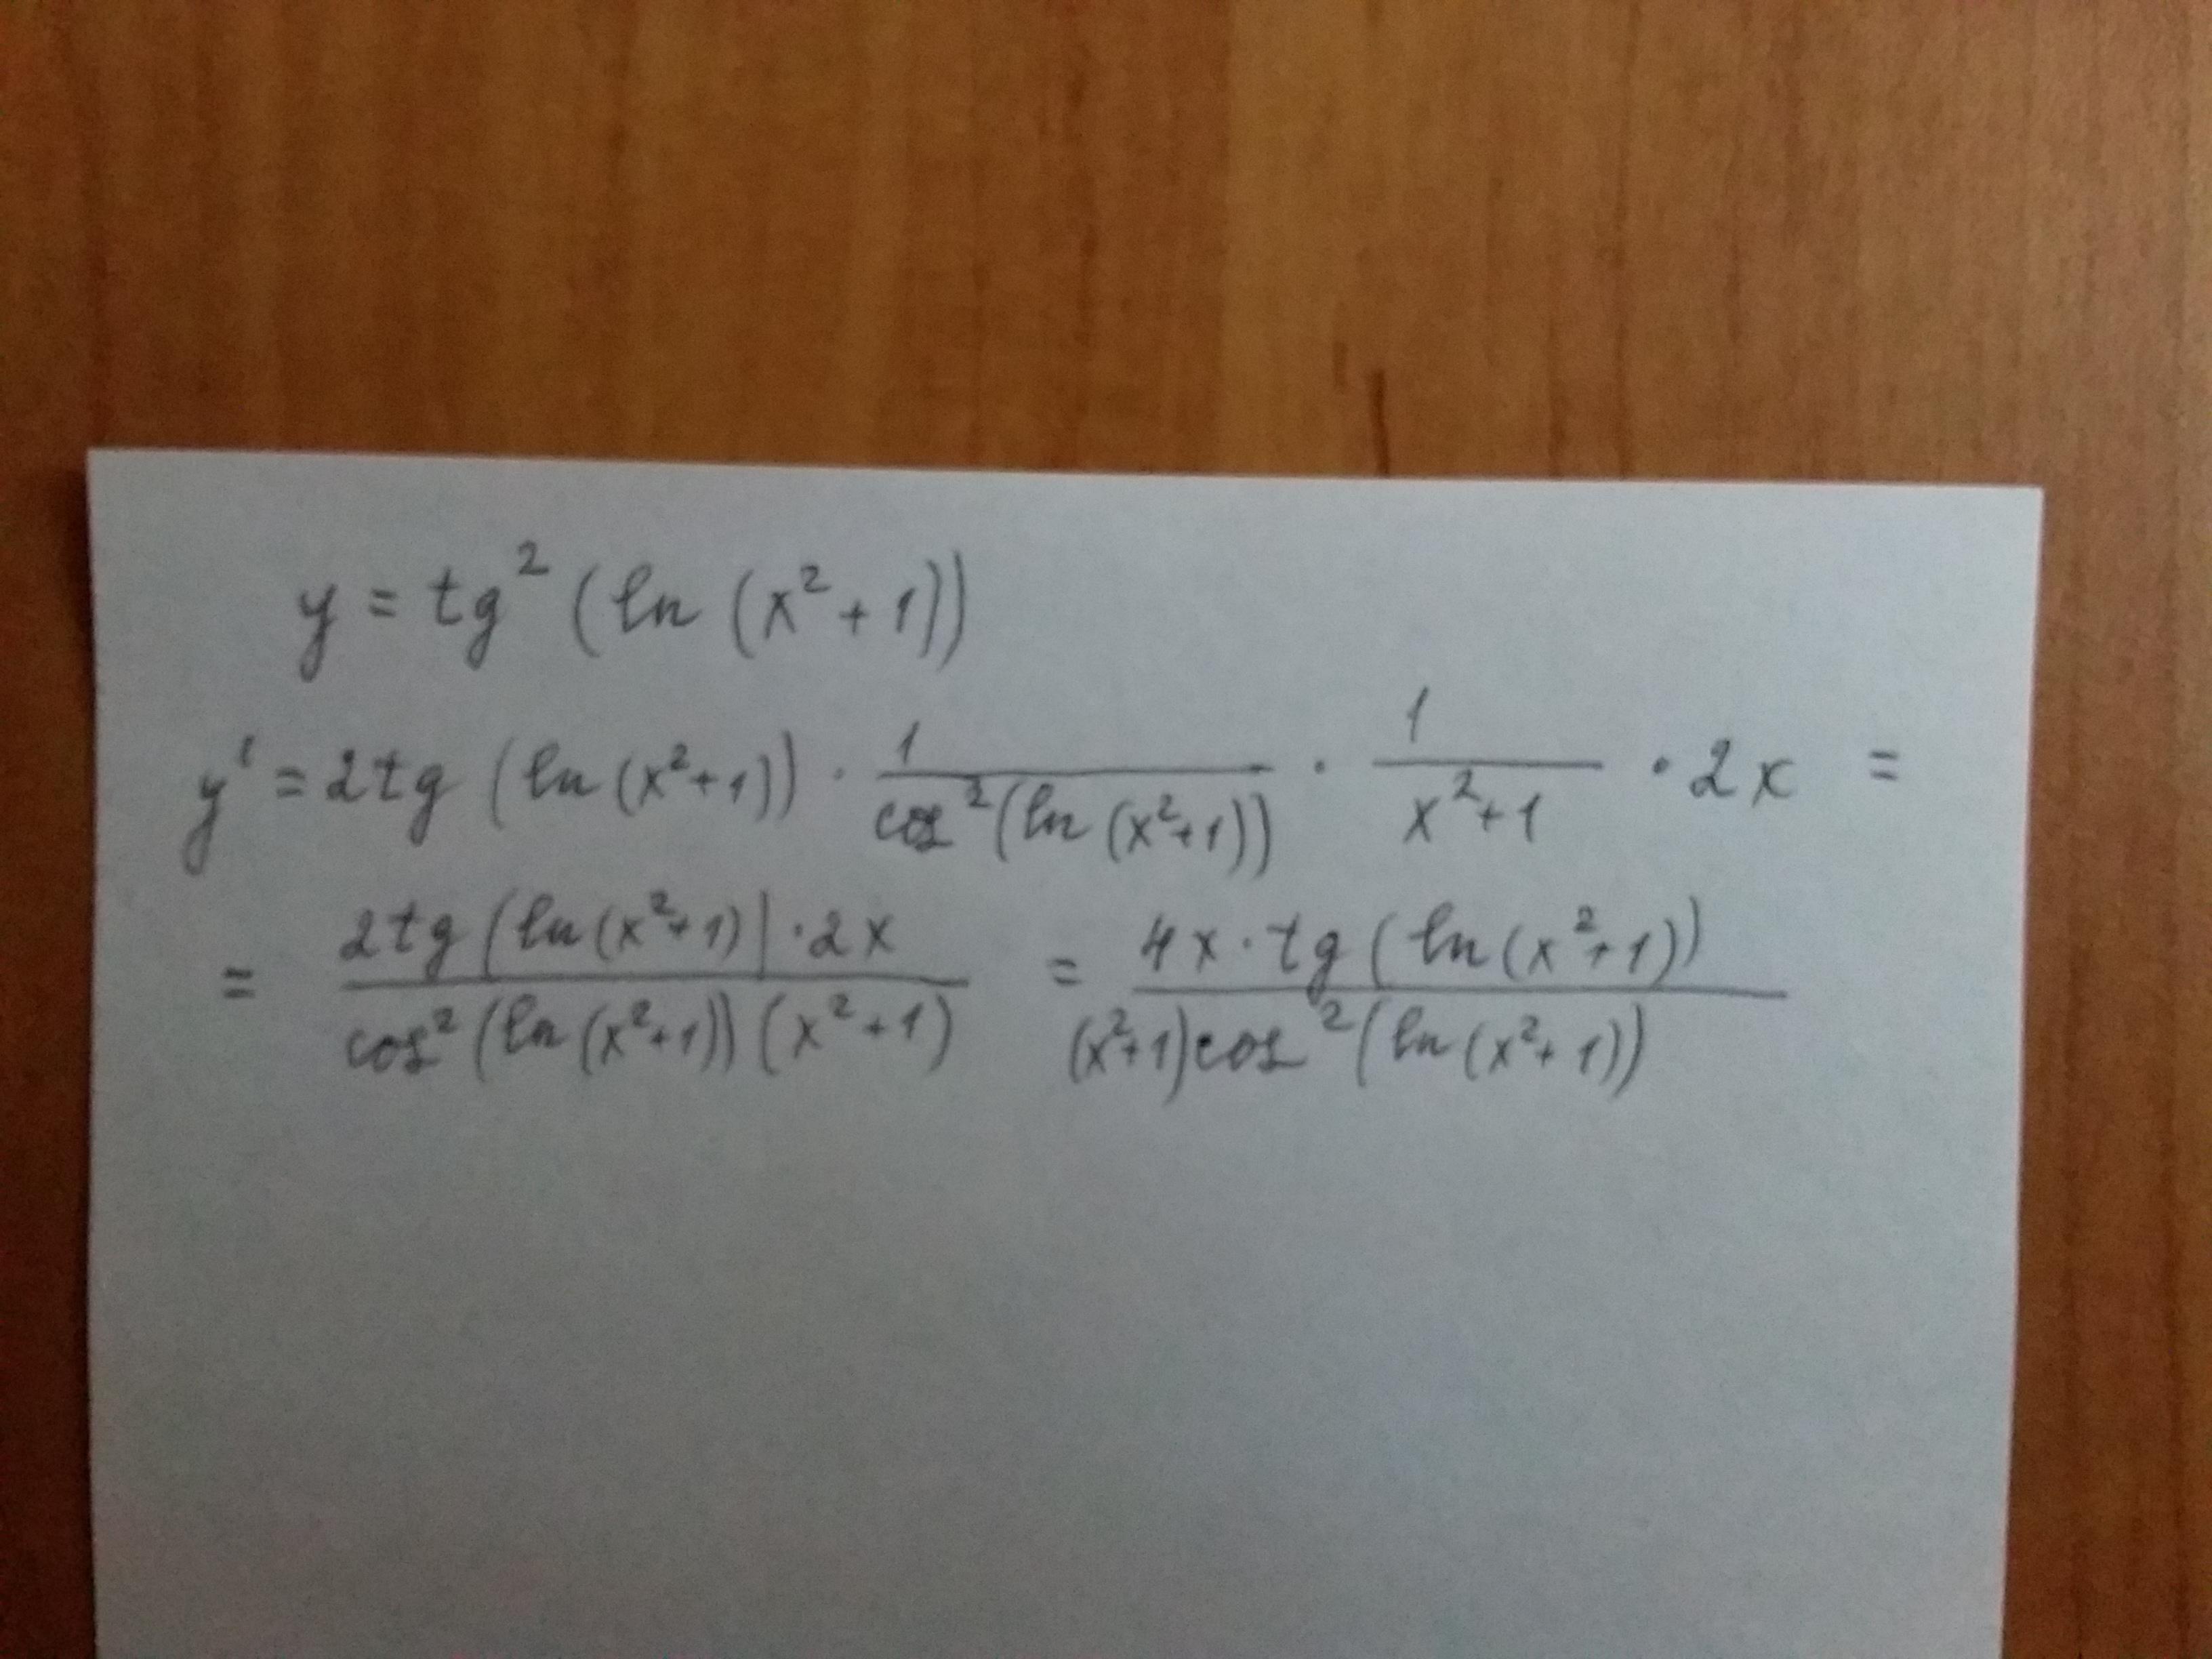 y = tg² (ln (x² + 1))
y' = 2tg (ln (x²+1)) · 1/(cos² (ln (x²+1))) · 1/(x²+1) · 2x =
= (2tg (ln (x²+1)| · 2x)/(cos² (ln (x²+1)) (x² + 1)) = (4x · tg (ln (x²+1)))/((x²+1) cos² (ln (x²+1)))